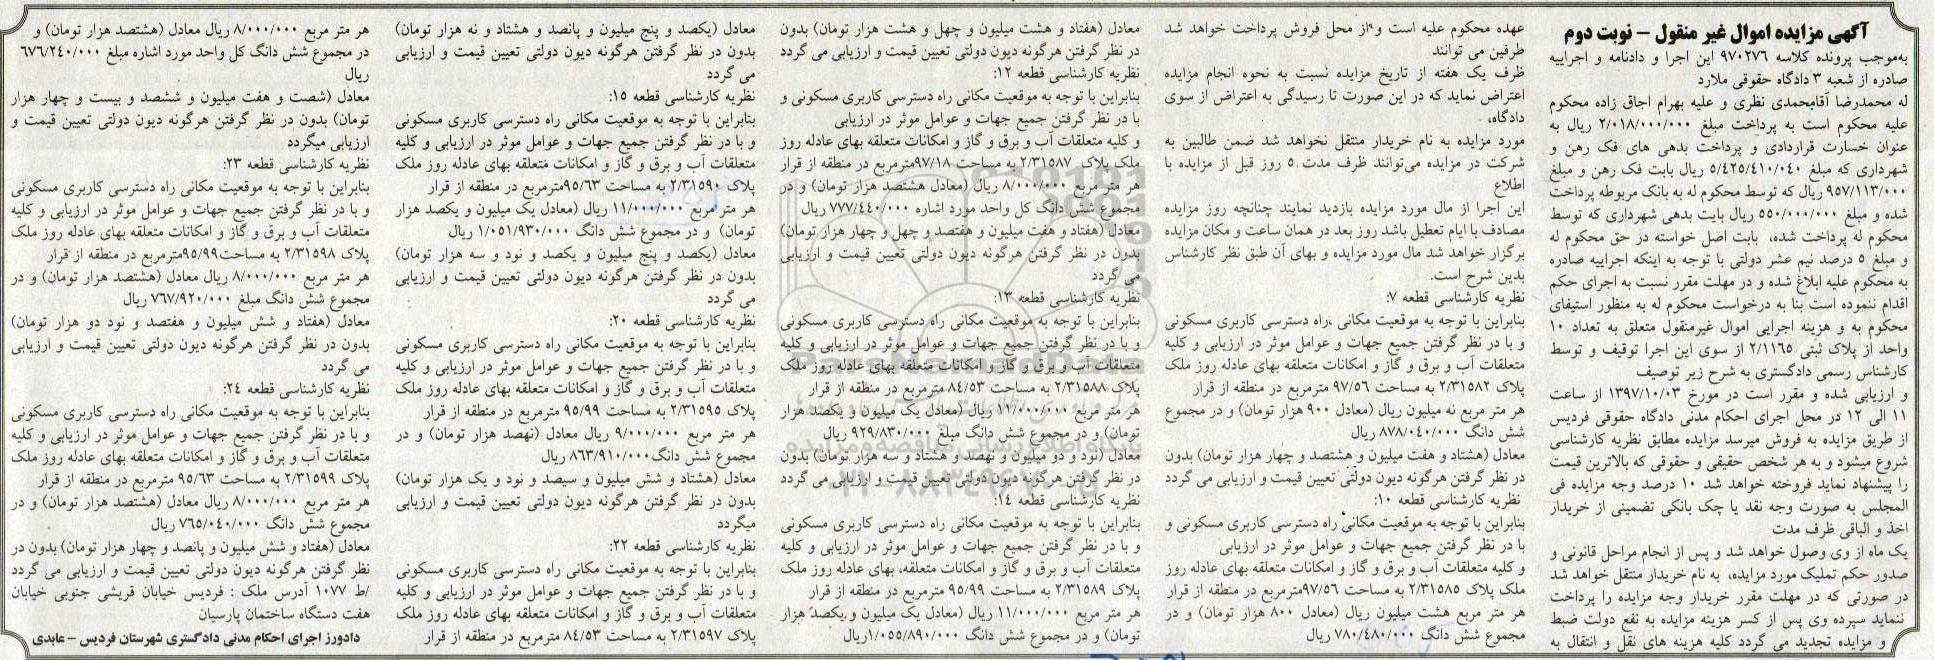 آگهی مزایده اموال غیر منقول – نوبت دوم
به‌موجب پرونده کلاسه ۹۷۰۲۷۶ این اجرا و دادنامه و اجراییه
صادره از شعبه ۳ دادگاه حقوقی ملارد
له محمدرضا آقامحمدی نظری و علیه بهرام اجاق زاده محکوم
علیه محکوم است به پرداخت مبلغ ۲/۰۱۸/۰۰۰/۰۰۰ ریال به
عنوان خسارت قراردادی و پرداخت بدهی های فک رهن و
شهرداری که مبلغ ۵/۴۲۵/۴۱۰/۰۴۰ ریال بابت فک رهن و مبلغ
۹۵۷/۱۱۳/۰۰۰ ریال که توسط محکوم له به بانک مربوطه پرداخت
شده و مبلغ ۵۵۰/۰۰۰/۰۰۰ ریال بابت بدهی شهرداری که توسط
محکوم له پرداخت شده، بابت اصل خواسته در حق محکوم له
و مبلغ ۵ درصد نیم عشر دولتی با توجه به اینکه اجراییه صادره
به محکوم علیه ابلاغ شده و در مهلت مقرر نسبت به اجرای حکم
اقدام ننموده است بنا به درخواست محکوم له به منظور استیفای
محکوم به و هزینه اجرایی اموال غیرمنقول متعلق به تعداد ۱۰
واحد از پلاک ثبتی ۲/۱۱۶۵ از سوی این اجرا توقیف و توسط
کارشناس رسمی دادگستری به شرح زیر توصیف
و ارزیابی شده و مقرر است در مورخ ۱۳۹۷/۱۰/۰۳ از ساعت
۱۱ الی ۱۲ در محل اجرای احکام مدنی دادگاه حقوقی فردیس
از طریق مزایده به فروش میرسد مزایده مطابق نظریه کارشناسی
شروع میشود و به هر شخص حقیقی و حقوقی که بالاترین قیمت
را پیشنهاد نماید فروخته خواهد شد ۱۰ درصد وجه مزایده فی
المجلس به صورت وجه نقد یا چک بانکی تضمینی از خریدار
اخذ و الباقی ظرف مدت
یک ماه از وی وصول خواهد شد و پس از انجام مراحل قانونی و
صدور حکم تملیک مورد مزایده، به نام خریدار منتقل خواهد شد
در صورتی که در مهلت مقرر خریدار وجه مزایده را پرداخت
ننماید سپرده وی پس از کسر هزینه مزایده به نفع دولت ضبط
و مزایده تجدید می گردد کلیه هزینه های نقل و انتقال به
عهده محکوم علیه است و از محل فروش پرداخت خواهد شد
طرفین می توانند
ظرف یک هفته از تاریخ مزایده نسبت به نحوه انجام مزایده
اعتراض نماید که در این صورت تا رسیدگی به اعتراض از سوی
دادگاه،
مورد مزایده به نام خریدار منتقل نخواهد شد ضمن طالبین به
شرکت در مزایده می‌توانند ظرف مدت ۵ روز قبل از مزایده با
اطلاع
این اجرا از مال مورد مزایده بازدید نمایند چنانچه روز مزایده
مصادف با ایام تعطیل باشد روز بعد در همان ساعت و مکان مزایده
برگزار خواهد شد مال مورد مزایده و بهای آن طبق نظر کارشناس
بدین شرح است.
نظریه کارشناسی قطعه ۷:
بنابراین با توجه به موقعیت مکانی ،راه دسترسی کاربری مسکونی
و با در نظر گرفتن جمیع جهات و عوامل موثر در ارزیابی و کلیه
متعلقات آب و برق و گاز و امکانات متعلقه بهای عادله روز ملک
پلاک ۲/۳۱۵۸۲ به مساحت ۹۷/۵۶ مترمربع در منطقه از قرار
هر متر مربع نه میلیون ریال (معادل ۹۰۰ هزار تومان) و در مجموع
شش دانگ ۸۷۸/۰۴۰/۰۰۰ ریال
معادل (هشتاد و هفت میلیون و هشتصد و چهار هزار تومان) بدون
در نظر گرفتن هرگونه دیون دولتی تعیین قیمت و ارزیابی می گردد
نظریه کارشناسی قطعه ۱۰:
بنابراین با توجه به موقعیت مکانی راه دسترسی کاربری مسکونی و
با در نظر گرفتن جمیع جهات و عوامل موثر در ارزیابی
و کلیه متعلقات آب و برق و گاز و امکانات متعلقه بهای عادله روز
ملک پلاک ۲/۳۱۵۸۵ به مساحت ۹۷/۵۶مترمربع در منطقه از قرار
هر متر مربع هشت میلیون ریال (معادل ۸۰۰ هزار تومان) و در
مجموع شش دانگ ۷۸۰/۴۸۰/۰۰۰ ریال
معادل (هفتاد و هشت میلیون و چهل و هشت هزار تومان) بدون
در نظر گرفتن هرگونه دیون دولتی تعیین قیمت و ارزیابی می گردد
نظریه کارشناسی قطعه ۱۲:
بنابراین با توجه به موقعیت مکانی راه دسترسی کاربری مسکونی و
با در نظر گرفتن جمیع جهات و عوامل موثر در ارزیابی
و کلیه متعلقات آب و برق و گاز و امکانات متعلقه بهای عادله روز
ملک پلاک ۲/۳۱۵۸۷ به مساحت ۹۷/۱۸مترمربع در منطقه از قرار
هر متر مربع ۸/۰۰۰/۰۰۰ ریال (معادل هشتصد هزار تومان) و در
مجموع شش دانگ کل واحد مورد اشاره ۷۷۷/۴۴۰/۰۰۰ ریال
معادل (هفتاد و هفت میلیون و هفتصد و چهل و چهار هزار تومان)
بدون در نظر گرفتن هرگونه دیون دولتی تعیین قیمت و ارزیابی
می گردد
نظریه کارشناسی قطعه ۱۳:
بنابراین با توجه به موقعیت مکانی راه دسترسی کاربری مسکونی
و با در نظر گرفتن جمیع جهات و عوامل موثر در ارزیابی و کلیه
متعلقات آب و برق و گاز و امکانات متعلقه بهای عادله روز ملک
پلاک ۲/۳۱۵۸۸ به مساحت ۸۴/۵۳ مترمربع در منطقه از قرار
هر متر مربع ۱۱/۰۰۰/۰۰۰ ریال (معادل یک میلیون و یکصد هزار
تومان) و در مجموع شش دانگ مبلغ ۹۲۹/۸۳۰/۰۰۰ ریال
معادل (نود و دو میلیون و نهصد و هشتاد و سه هزار تومان) بدون
در نظر گرفتن هرگونه دیون دولتی تعیین قیمت و ارزیابی می گردد
نظریه کارشناسی قطعه ۱۴:
بنابراین با توجه به موقعیت مکانی راه دسترسی کاربری مسکونی
و با در نظر گرفتن جمیع جهات و عوامل موثر در ارزیابی و کلیه
متعلقات آب و برق و گاز و امکانات متعلقه، بهای عادله روز ملک
پلاک ۲/۳۱۵۸۹ به مساحت ۹۵/۹۹ مترمربع در منطقه از قرار
هر متر مربع ۱۱/۰۰۰/۰۰۰ ریال (معادل یک میلیون و یکصد هزار
تومان) و در مجموع شش دانگ ۱/۰۵۵/۸۹۰/۰۰۰ریال
معادل (یکصد و پنج میلیون و پانصد و هشتاد و نه هزار تومان)
بدون در نظر گرفتن هرگونه دیون دولتی تعیین قیمت و ارزیابی
می گردد
نظریه کارشناسی قطعه ۱۵:
بنابراین با توجه به موقعیت مکانی راه دسترسی کاربری مسکونی
و با در نظر گرفتن جمیع جهات و عوامل موثر در ارزیابی و کلیه
متعلقات آب و برق و گاز و امکانات متعلقه بهای عادله روز ملک
پلاک ۲/۳۱۵۹۰ به مساحت ۹۵/۶۳مترمربع در منطقه از قرار
هر متر مربع ۱۱/۰۰۰/۰۰۰ ریال (معادل یک میلیون و یکصد هزار
تومان) و در مجموع شش دانگ ۱/۰۵۱/۹۳۰/۰۰۰ ریال
معادل (یکصد و پنج میلیون و یکصد و نود و سه هزار تومان)
بدون در نظر گرفتن هرگونه دیون دولتی تعیین قیمت و ارزیابی
می گردد
نظریه کارشناسی قطعه ۲۰:
بنابراین با توجه به موقعیت مکانی راه دسترسی کاربری مسکونی
و با در نظر گرفتن جمیع جهات و عوامل موثر در ارزیابی و کلیه
متعلقات آب و برق و گاز و امکانات متعلقه بهای عادله روز ملک
پلاک ۲/۳۱۵۹۵ به مساحت ۹۵/۹۹ مترمربع در منطقه از قرار
هر متر مربع ۹/۰۰۰/۰۰۰ ریال معادل (نهصد هزار تومان) و در
مجموع شش دانگ۸۶۳/۹۱۰/۰۰۰ ریال
معادل (هشتاد و شش میلیون و سیصد و نود و یک هزار تومان)
بدون در نظر گرفتن هرگونه دیون دولتی تعیین قیمت و ارزیابی
میگردد
نظریه کارشناسی قطعه ۲۲:
بنابراین با توجه به موقعیت مکانی راه دسترسی کاربری مسکونی
و با در نظر گرفتن جمیع جهات و عوامل موثر در ارزیابی و کلیه
متعلقات آب و برق و گاز و امکانات متعلقه بهای عادله روز ملک
پلاک ۲/۳۱۵۹۷ به مساحت ۸۴/۵۳ مترمربع در منطقه از قرار
هر متر مربع ۸/۰۰۰/۰۰۰ ریال معادل (هشتصد هزار تومان) و
در مجموع شش دانگ کل واحد مورد اشاره مبلغ ۶۷۶/۲۴۰/۰۰۰
ریال
معادل (شصت و هفت میلیون و ششصد و بیست و چهار هزار
تومان) بدون در نظر گرفتن هرگونه دیون دولتی تعیین قیمت و
ارزیابی میگردد
نظریه کارشناسی قطعه ۲۳:
بنابراین با توجه به موقعیت مکانی راه دسترسی کاربری مسکونی
و با در نظر گرفتن جمیع جهات و عوامل موثر در ارزیابی و کلیه
متعلقات آب و برق و گاز و امکانات متعلقه بهای عادله روز ملک
پلاک ۲/۳۱۵۹۸ به مساحت۹۵/۹۹مترمربع در منطقه از قرار
هر متر مربع ۸/۰۰۰/۰۰۰ ریال معادل (هشتصد هزار تومان) و در
مجموع شش دانگ مبلغ ۷۶۷/۹۲۰/۰۰۰ ریال
معادل (هفتاد و شش میلیون و هفتصد و نود دو هزار تومان)
بدون در نظر گرفتن هرگونه دیون دولتی تعیین قیمت و ارزیابی
می گردد
نظریه کارشناسی قطعه ۲۴:
بنابراین با توجه به موقعیت مکانی راه دسترسی کاربری مسکونی
و با در نظر گرفتن جمیع جهات و عوامل موثر در ارزیابی و کلیه
متعلقات آب و برق و گاز و امکانات متعلقه بهای عادله روز ملک
پلاک ۲/۳۱۵۹۹ به مساحت ۹۵/۶۳ مترمربع در منطقه از قرار
هر متر مربع ۸/۰۰۰/۰۰۰ ریال معادل (هشتصد هزار تومان) و در
مجموع شش دانگ ۷۶۵/۰۴۰/۰۰۰ ریال
معادل (هفتاد و شش میلیون و پانصد و چهار هزار تومان) بدون در
نظر گرفتن هرگونه دیون دولتی تعیین قیمت و ارزیابی می گردد
/ط ۱۰۷۷ آدرس ملک : فردیس خیابان قریشی جنوبی خیابان
هفت دستگاه ساختمان پارسیان
دادورز اجرای احکام مدنی دادگستری شهرستان فردیس – عابدی
ParsNamadData